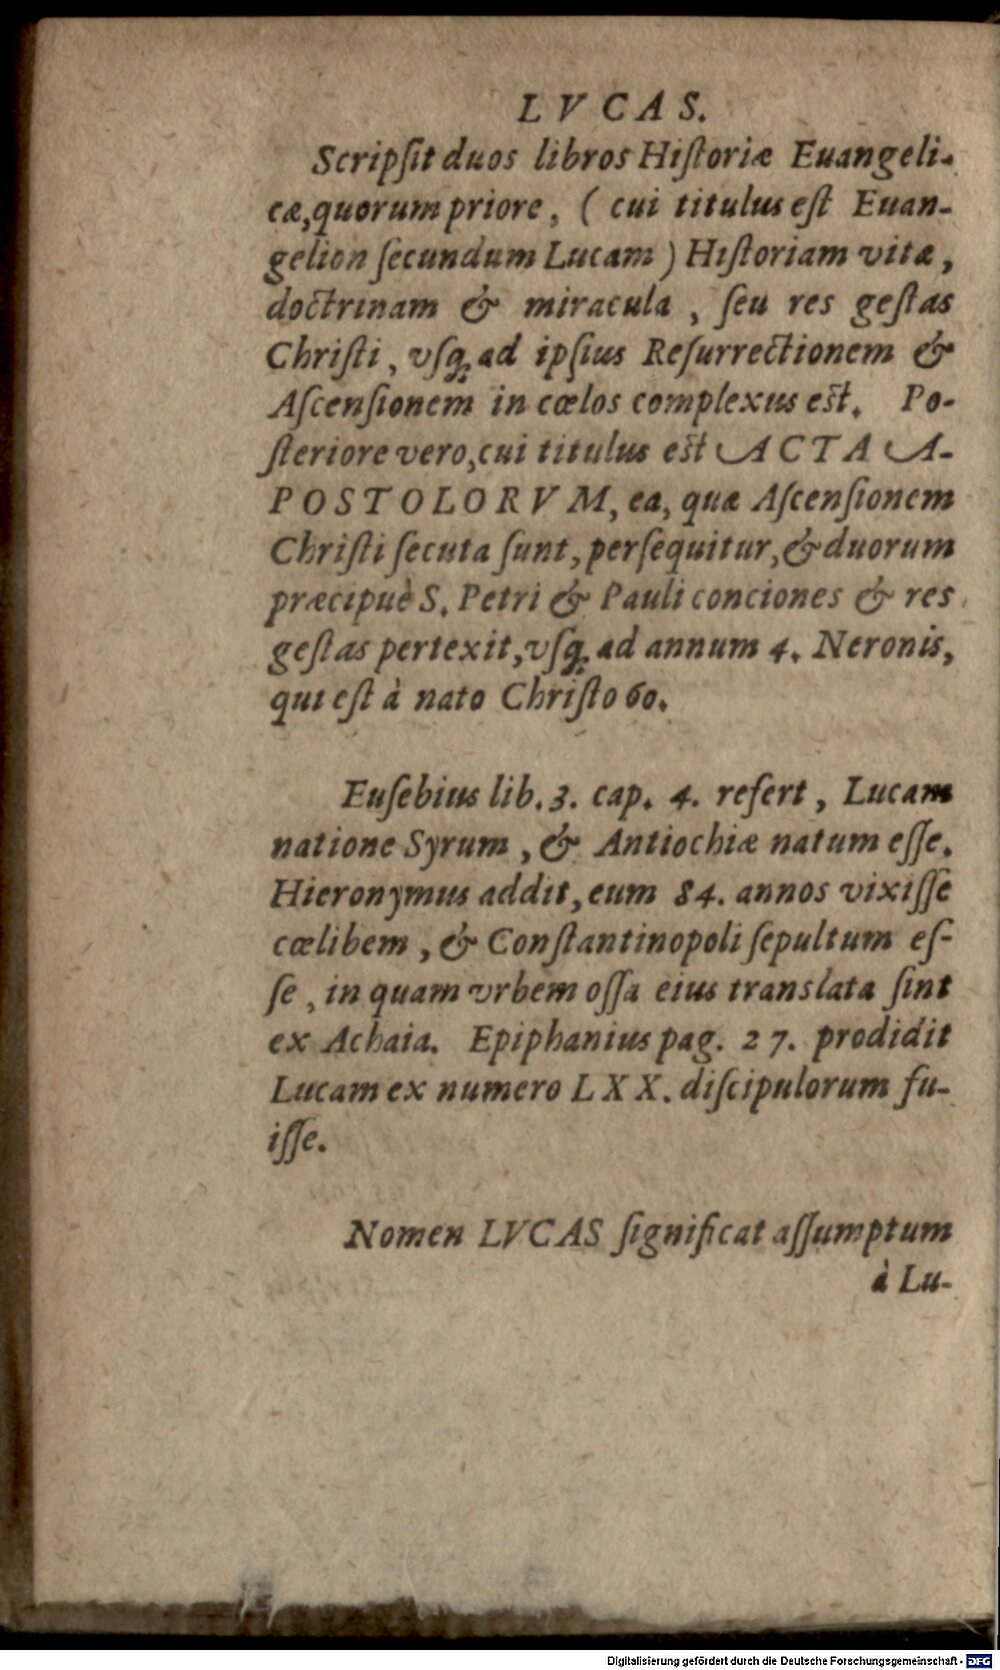 LVCAS.
Scripſit duos libros Hiſtoriæ Euangeli-
cæ, quorum priore, ( cui titulus eſt Euan-
gelion ſecundum Lucam ) Hiſtoriam vitæ,
doctrinam & miracula, ſeu res geſtas
Chriſti, vſq; ad ipſius Reſurrectionem &
Aſcenſionem in cœlos complexus eſt. Po-
ſteriore vero, cui titulus eſt ACTA A-
POSTOLORVM, ea, quæ Aſcenſionem
Chriſti ſecuta ſunt, perſequitur, & duorum
præcipuè S. Petri & Pauli conciones & res
geſtas pertexit, vſq; ad annum 4. Neronis,
qui eſt à nato Chriſto 60.
Euſebius lib. 3. cap. 4. refert, Lucam
natione Syrum, & Antiochiæ natum eſſe.
Hieronymus addit, eum 84. annos vixiſſe
cœlibem, & Conſtantinopoli ſepultum eſ-
ſe, in quam vrbem oſſa eius translata ſint
ex Achaia. Epiphanius pag. 27. prodidit
Lucam ex numero LXX. diſcipulorum fu-
iſſe.
Nomen LVCAS ſignificat aſſumptum
à Lu-
Digitalisierung gefördert durch die Deutsche Forschungsgemeinschaft - DFG